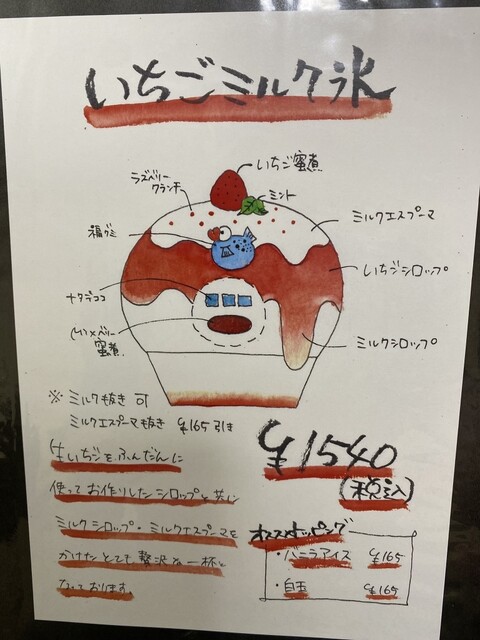 いちごミルク氷
いちご蜜煮
ラズベリー
クランチ
ミント
ミルクエスプーマ
福グミ
いちごシロップ
ナタデココ
ベリー
蜜煮
ミルクシロップ
※ ミルク抜き 可
ミルクエスプーマ抜き ¥165引き
¥1540
(税込)
生いちごをふんだんに
使ってお作りしたシロップと共に
ミルクシロップ・ミルクエスプーマを
かけたとても贅沢な一杯と
なっております。
オススメトッピング
・バニラアイス ¥165
・白玉 ¥165